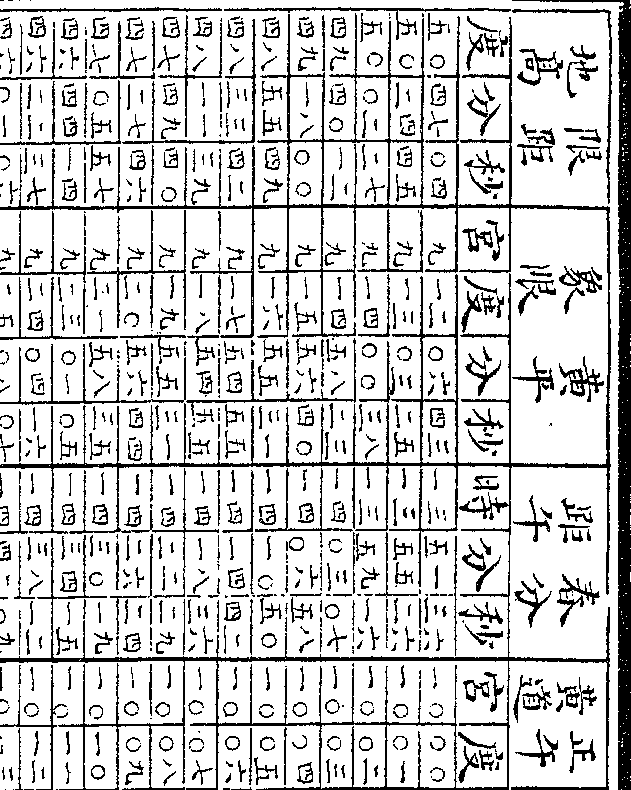 限距地高 黃平象限 春分距午 正午黃道
度 分 秒 宮 度 分 秒 時 分 秒 宮 度
五〇 四七 〇四 九 一二 〇六 四三 一三 五一 三六 一〇 〇〇
五〇 二四 四五 九 一三 〇三 二五 一三 五五 二六 一〇 〇一
五〇 〇二 二七 九 一四 〇〇 三八 一三 五九 一六 一〇 〇二
四九 四〇 一二 九 一四 五八 二三 一四 〇三 〇七 一〇 〇三
四九 一八 〇〇 九 一五 五六 四〇 一四 〇六 五八 一〇 〇四
四八 五五 四九 九 一六 五五 三一 一四 一〇 五〇 一〇 〇五
四八 三三 四二 九 一七 五四 五五 一四 一四 四二 一〇 〇六
四八 一一 三九 九 一八 五四 五五 一四 一八 三六 一〇 〇七
四七 四九 四〇 九 一九 五五 三一 一四 二二 二九 一〇 〇八
四七 二七 四六 九 二〇 五六 四四 一四 二六 二四 一〇 〇九
四七 〇五 五七 九 二一 五八 三五 一四 三〇 一九 一〇 一〇
四六 四四 一四 九 二三 〇一 〇五 一四 三四 一五 一〇 一一
四六 二二 三七 九 二四 〇四 一六 一四 三八 一二 一〇 一二